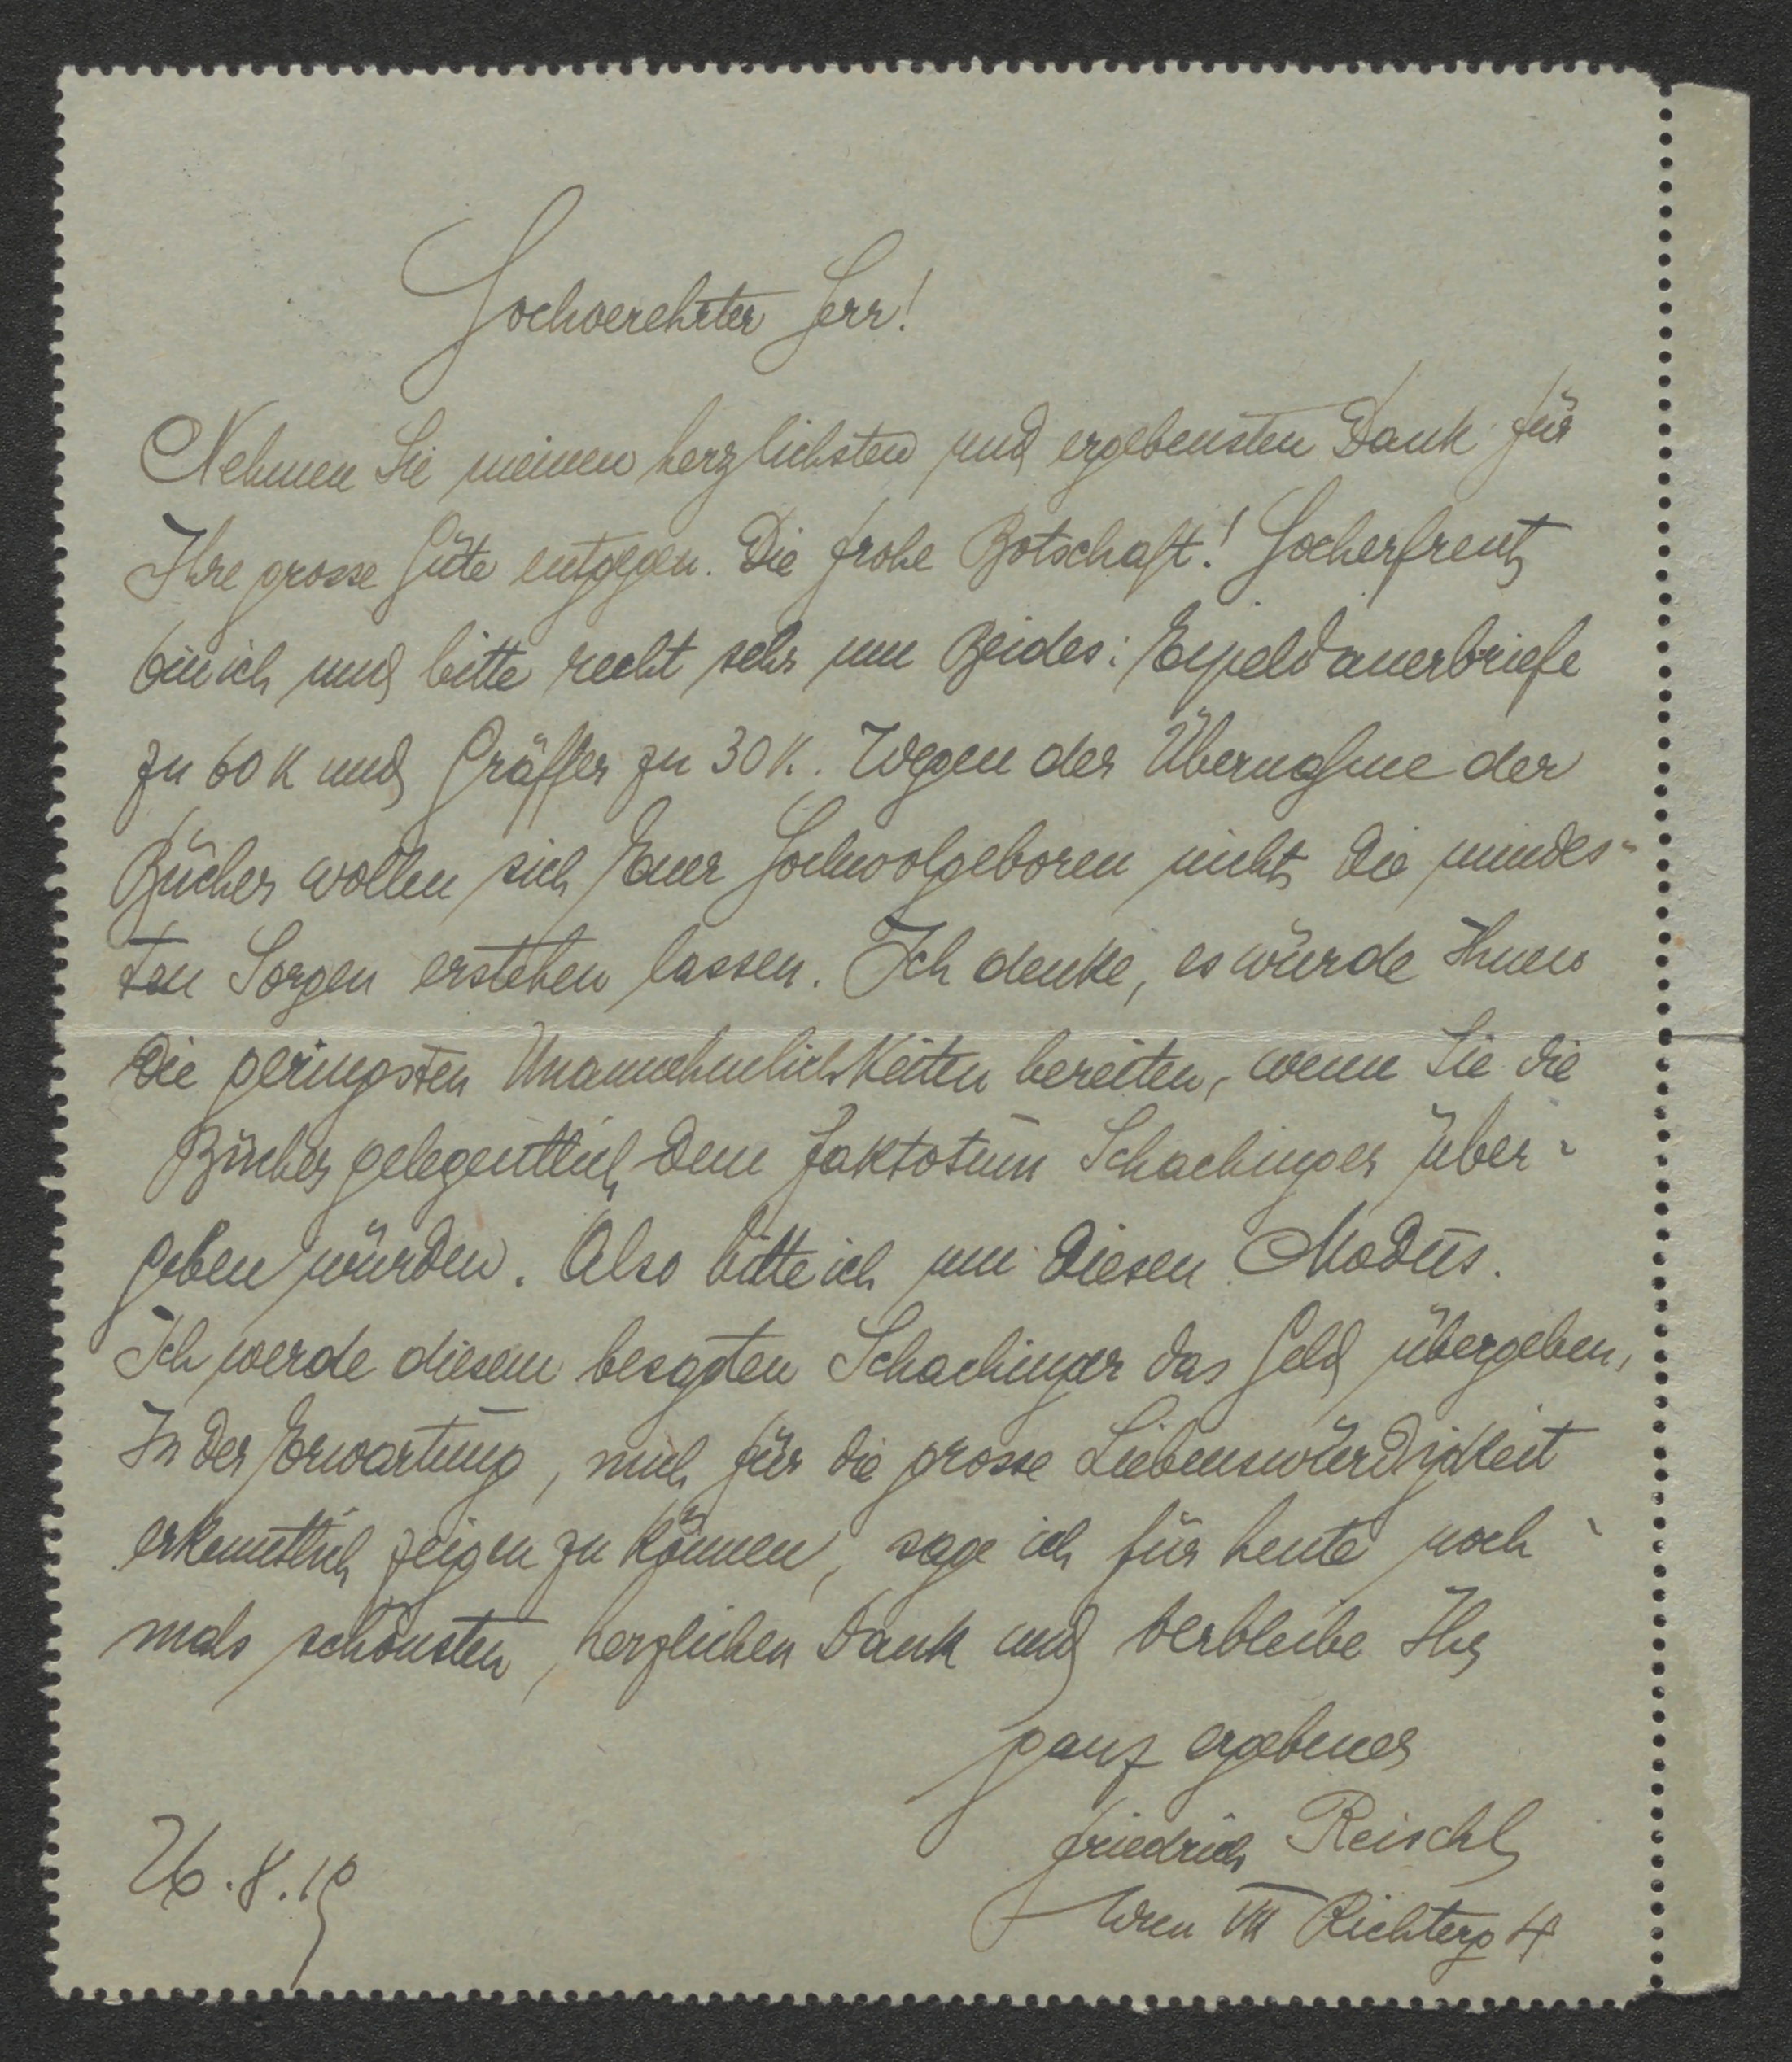 Hochverehrter Herr!
Nehmen Sie meinen herzlichsten und ergebensten Dank für
Ihre grosse Güte entgegen. Die frohe Botschaft! Hocherfreut
bin ich und bitte recht sehr um Beides: Eipeldauerbriefe
zu 60 K und Gräffer zu 30 K. Wegen der Übernahme der
Bücher wollen sich Euer Hochwolgeboren nicht die mindes-
ten Sorgen erstehen lassen. Ich denke, es würde Ihnen
die geringsten Unannehmlichkeiten bereiten, wenn Sie die
Bücher gelegentlich dem Faktotum Schachinger über-
geben würden. Also bitte ich um diesen Modus.
Ich werde diesem besagten Schachinger das Geld übergeben,
In der Erwartung, mich für die grosse Liebenswürdigkeit
erkenntlich zeigen zu können, sage ich für heute noch-
mals schönsten, herzlichen Dank und verbleibe Ihr
ganz ergebener
Friedrich Reischl
Wien VII Richterg 4
26.8.19